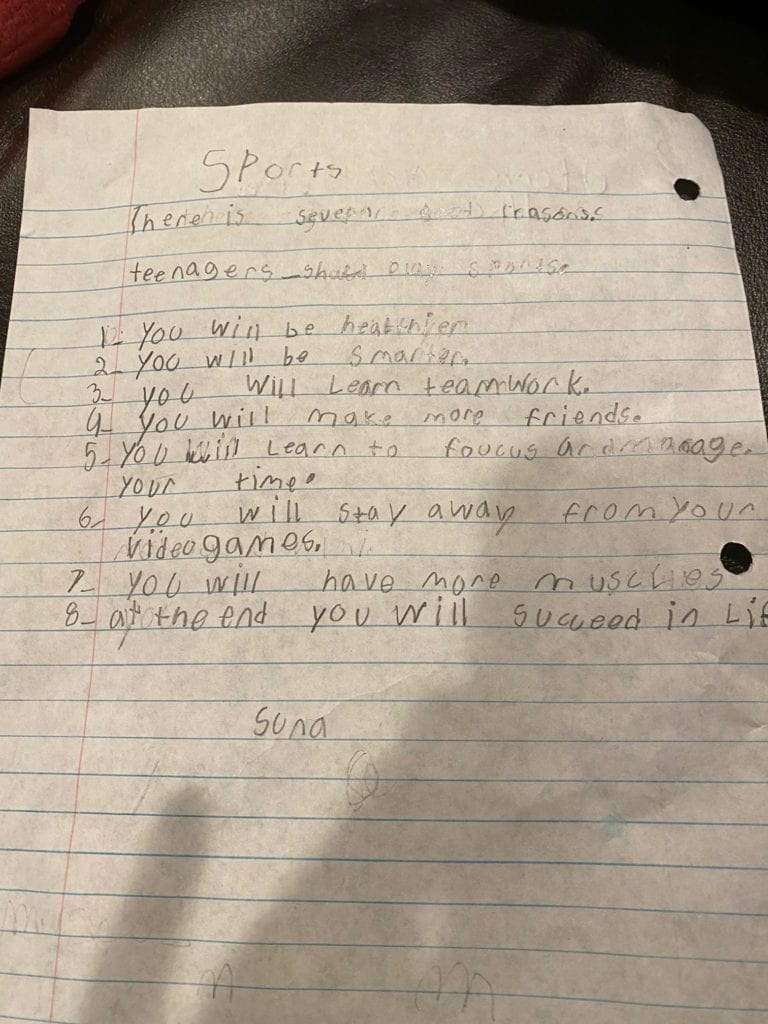 Sports
There is several good reasons.
teenagers should play sports.
1- you will be healthier
2- you will be smarter.
3- you will Learn teamwork.
4- you will make more friends.
5- you will Learn to foucus and manage.
your time.
6- you will stay away from your
videogames.
7- you will have more muscles
8- at the end you will succeed in Lif
Suna